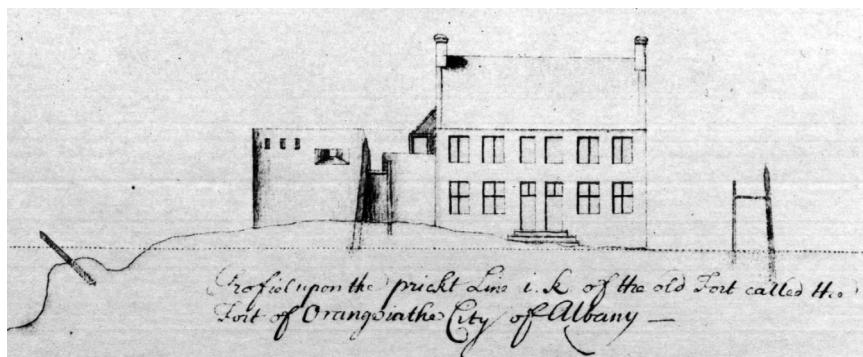 Profiel upon the prickt Line i. k of the old Fort called the
Fort of Orange in the City of Albany —